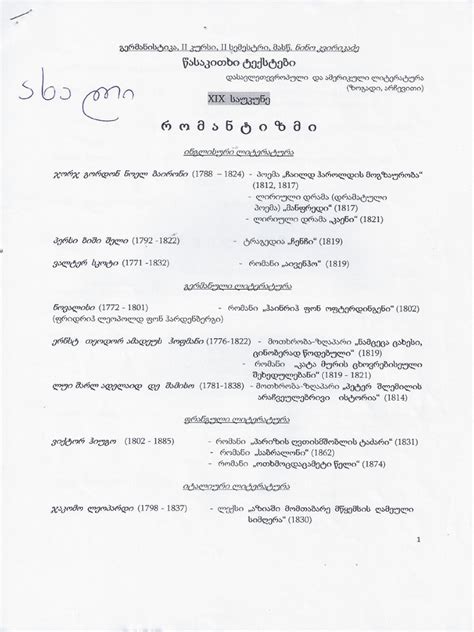 გერმანისტიკა, II კურსი, II სემესტრი, მასწ. ნინო კვირიკაძე
წასაკითხი ტექსტები
დასავლეთევროპული და ამერიკული ლიტერატურა
(ზოგადი, არჩევითი)
ახალი
XIX საუკუნე
რომანტიზმი
ინგლისური ლიტერატურა
ჯორჯ გორდონ ნოელ ბაირონი (1788 – 1824) - პოემა „ჩაილდ ჰაროლდის მოგზაურობა“
(1812, 1817)
- ლირიული დრამა (დრამატული
პოემა) „მანფრედი“ (1817)
- ლირიული დრამა „კაენი“ (1821)
პერსი ბიში შელი (1792 -1822) - ტრაგედია „ჩენჩი“ (1819)
ვალტერ სკოტი (1771 -1832) - რომანი „აივენჰო“ (1819)
გერმანული ლიტერატურა
ნოვალისი (1772 - 1801) - რომანი „ჰაინრიჰ ფონ ოფტერდინგენი“ (1802)
(ფრიდრიჰ ლეოპოლდ ფონ ჰარდენბერგი)
ერნსტ თეოდორ ამადეუს ჰოფმანი (1776-1822) - მოთხრობა-ზღაპარი „ნამცეცა ცახესი,
ცინობერად წოდებული“ (1819)
- რომანი „კატა მურის ცხოვრებისეული
შეხედულებანი“ (1819 - 1821)
ლუი შარლ ადელაიდ დე შამისო (1781-1838) - მოთხრობა-ზღაპარი „პეტერ შლემილის
არაჩვეულებრივი ისტორია“ (1814)
ფრანგული ლიტერატურა
ვიქტორ ჰიუგო (1802 - 1885) - რომანი „პარიზის ღვთისმშობლის ტაძარი“ (1831)
- რომანი „საბრალონი“ (1862)
- რომანი „ოთხმოცდაცამეტი წელი“ (1874)
იტალიური ლიტერატურა
ჯაკომო ლეოპარდი (1798 - 1837) - ლექსი „აზიაში მომთაბარე მწყემსის ღამეული
სიმღერა“ (1830)
1